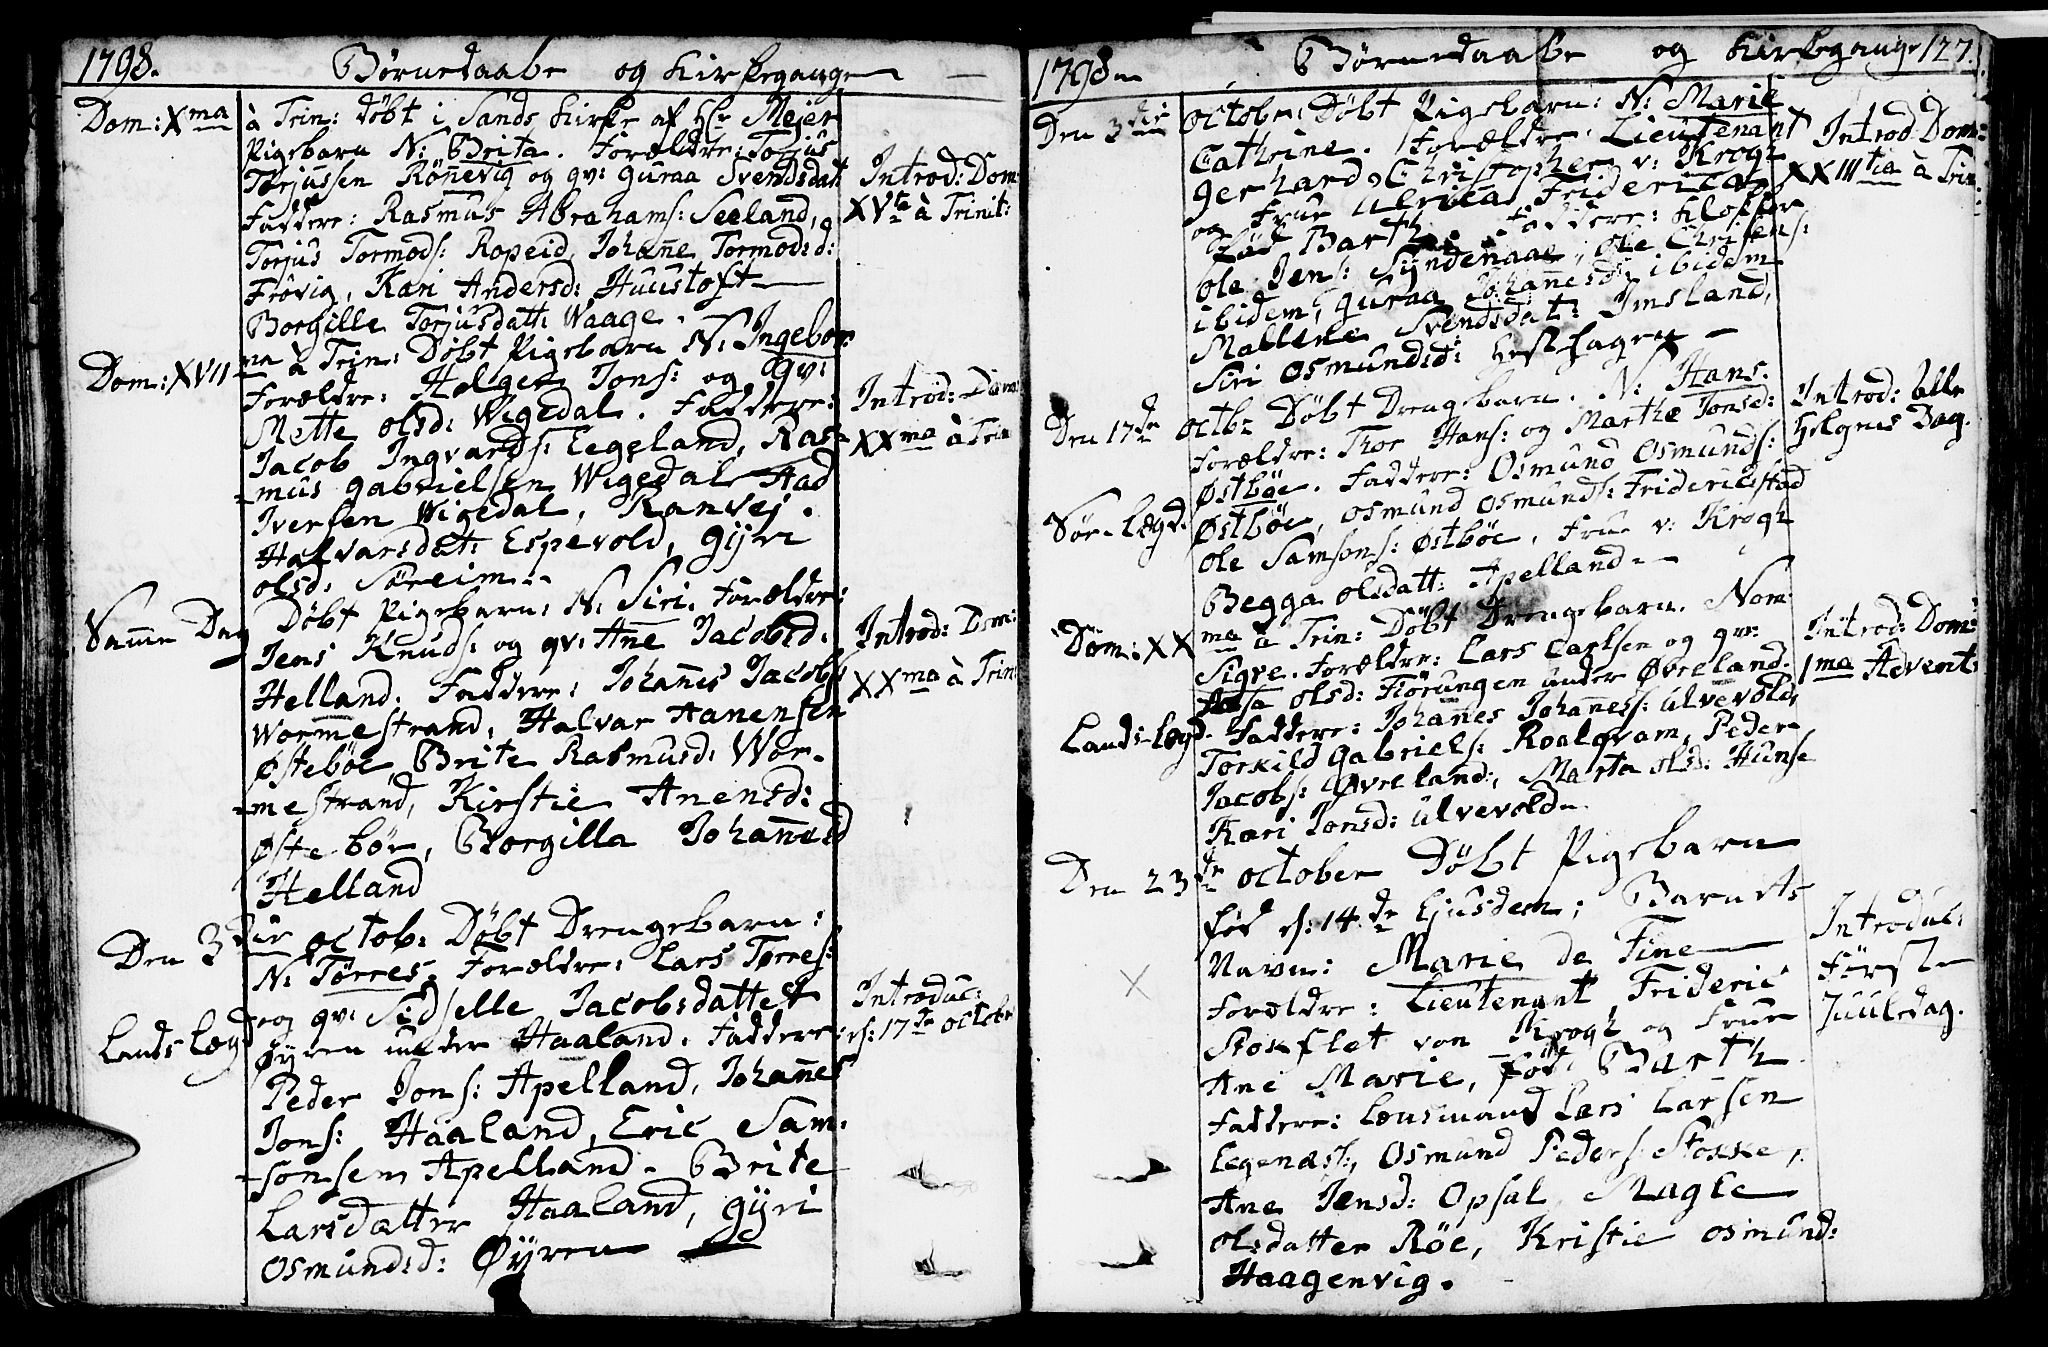 1798. Børnedaabe og Kirkegange
Dom: Xma à Trin: døbt i Sands Kirke af Hr Mejer
Pigebarn N: Brita. Forældre: Torjus
Torjussen Rönevig og qv: Guraa Svendsdat
Faddere: Rasmus Abrahams: Seeland,
Torjus Tormods: Ropeid, Johane Tormodsd:
Frövig, Kari Andersd: Huustoft
Borgille Torjusdatt: Waage.
Introd: Dom:
XVta à Trinit:
Dom: XVIIma à Trin: Döbt Pigebarn N: Ingebor:
Forældre: Holger Jons: og qv:
Mette olsd: Wigedal. Faddere:
Jacob Ingvards: Eegeland, Ras-
-mus Gabrielsen Wigedal Aad
Iversen Wigedal, Ranvej
Halvarsdat: Espevold, Gÿri
olsd: Söreim.
Introd: Dom:
XXma à Trin
Same Dag Döbt Pigebarn: N: Siri. Forældre:
Jens Knuds: og qv: Ane Jacobsd:
Helland. Faddere: Johanes Jacobs:
Wormestrand, Halvar Aanensen
Østeböe Brite Rasmusd: Wor-
-mestrand, Kirstie Anensd:
Østeböe, Borgilla Johanesd
Helland
Introd: Dom:
XXma à Trin:
Den 3die octob: Döbt Drengebarn:
N: Törres. Forældre: Lars Törres:
og qv: Sidselle Jacobsdatter
Øÿren under Haaland. Faddere:
Peder Jons: Apelland, Johanes
Jons: Haaland, Eric Sam-
-sonsen Apelland. Brite
Larsdatter Haaland, Gÿri
Osmundsd: Øÿren
Lands Lægd
Introduc:
d: 17de octobr
1798 Børnedaabe og Kirkegange 127.
Den 3die October Döbt Pigebarn: N: Marie
Cathrine. Forældre: Lieutenant
Gerhard Christopher v: Krogh
og Frue Ulrica Friderica
föd Barth. Faddere: Klokker
Ole Jens: Sÿndenaae, Ole Christens:
ibidem, Guraa Johanesd: ibidem
Mallene Svendsdat: Imsland,
Siri Osmundsd: Hesthagen
Introd: Dom:
XXIIItia à Trin:
Den 17de octbr Döbt Drengebarn. N: Hans.
Forældre: Thor Hans: og Marthe Jonsd:
Østböe. Faddere: Osmund Osmunds:
Østböe, Osmund Osmunds: Fridericstad
Ole Samsons: Østböe. Frue v: Krogh
Begga Olsdatt: Apelland
Sör-Lægd.
Introd: Alle
Helgens Dag.
Dom: XXma à Trin: Döbt Drengebarn. Nom:
Sigve. Forældre: Lars Carlsen og qv:
Aasa olsd: Fiörungen under Øvreland.
Faddere: Johanes Johaness: Ulvevold,
Torkild Gabriels: Roalqvam, Peder
Jacobs: Øvreland, Marta olsd: Hunse
Kari Jonsd: Ulvevold
Lands-Lægd.
Introd: Dom:
1ma Advent:
Den 23de october Döbt Pigebarn
föd d: 14de Ejusdem; Barnets
Navn: Marie de Fine
Forældre: Lieutenant Frideric
Stokflet von Krogh og Frue
Ane Marie, föd Barth
Faddere: Lensmand Lars Larsen
Legenæs:, Osmund Peders: Stokke,
Ane Jensd: Opsal, Magle
Olsdatter Röe, Kristie Osmund:
Haagenvig.
Introduc:
Förste
Juuledag.